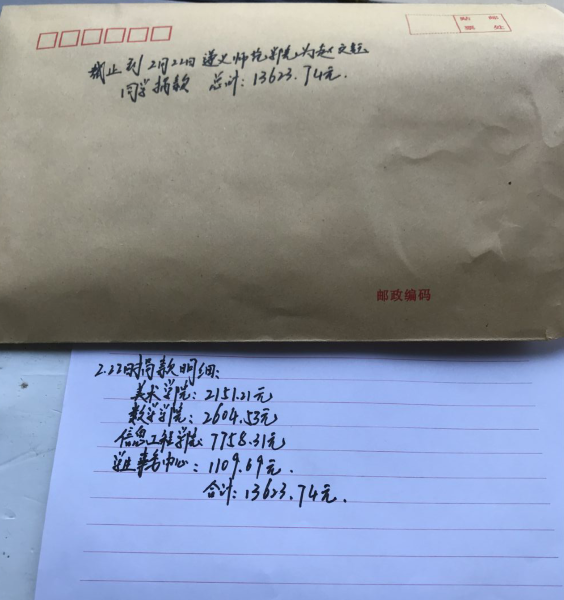 贴 邮
票 处
截止到2月22日遵义师范学院为赵文航
同学捐款 总计:13623.74元.
邮政编码
2.22日捐款明细:
美术学院:2151.21元
数学学院:2604.53元
信息工程学院:7758.31元
学生事务中心:1109.69元.
合计:13623.74元.